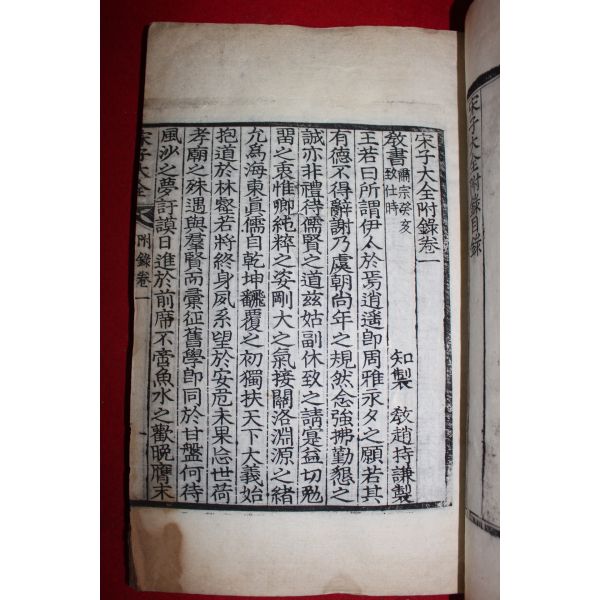 宋子大全附錄目錄
宋子大全附錄卷一
教書 肅宗癸亥致仕時 知製 教趙持謙製
王若曰所謂伊人於焉逍遥卽周雅永夕之願若其
有德不得辭謝乃虞朝尙年之規然念強拂勤懇之
誠亦非禮待儒賢之道玆姑副休致之請寔益切勉
留之衷惟卿純粹之姿剛大之氣接關洛淵源之緒
允爲海東眞儒自乾坤飜覆之初獨扶天下大義始
抱道於林壑若將終身夙系望於安危未果忘世荷
孝廟之殊遇與羣賢而彙征舊學卽同於甘盤何待
風沙之夢訏謨日進於前席不啻魚水之歡晩膺末
宋子大全 附錄卷一